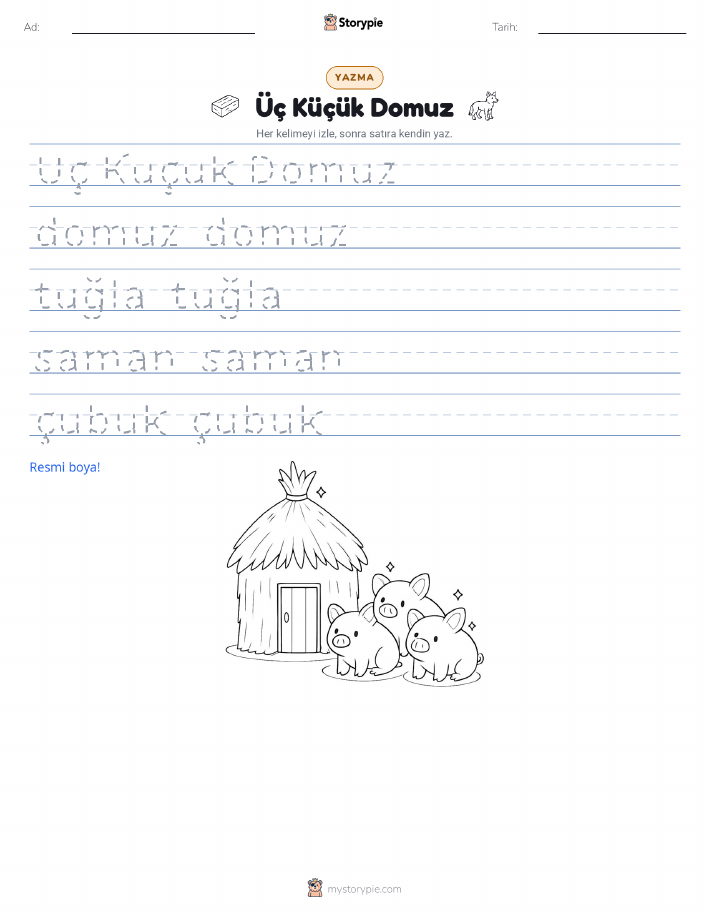 Ad:
Storypie
Tarih:
YAZMA
Üç Küçük Domuz
Her kelimeyi izle, sonra satıra kendin yaz.
Üç Küçük Domuz
domuz domuz
tuğla tuğla
saman saman
çubuk çubuk
Resmi boya!
mystorypie.com